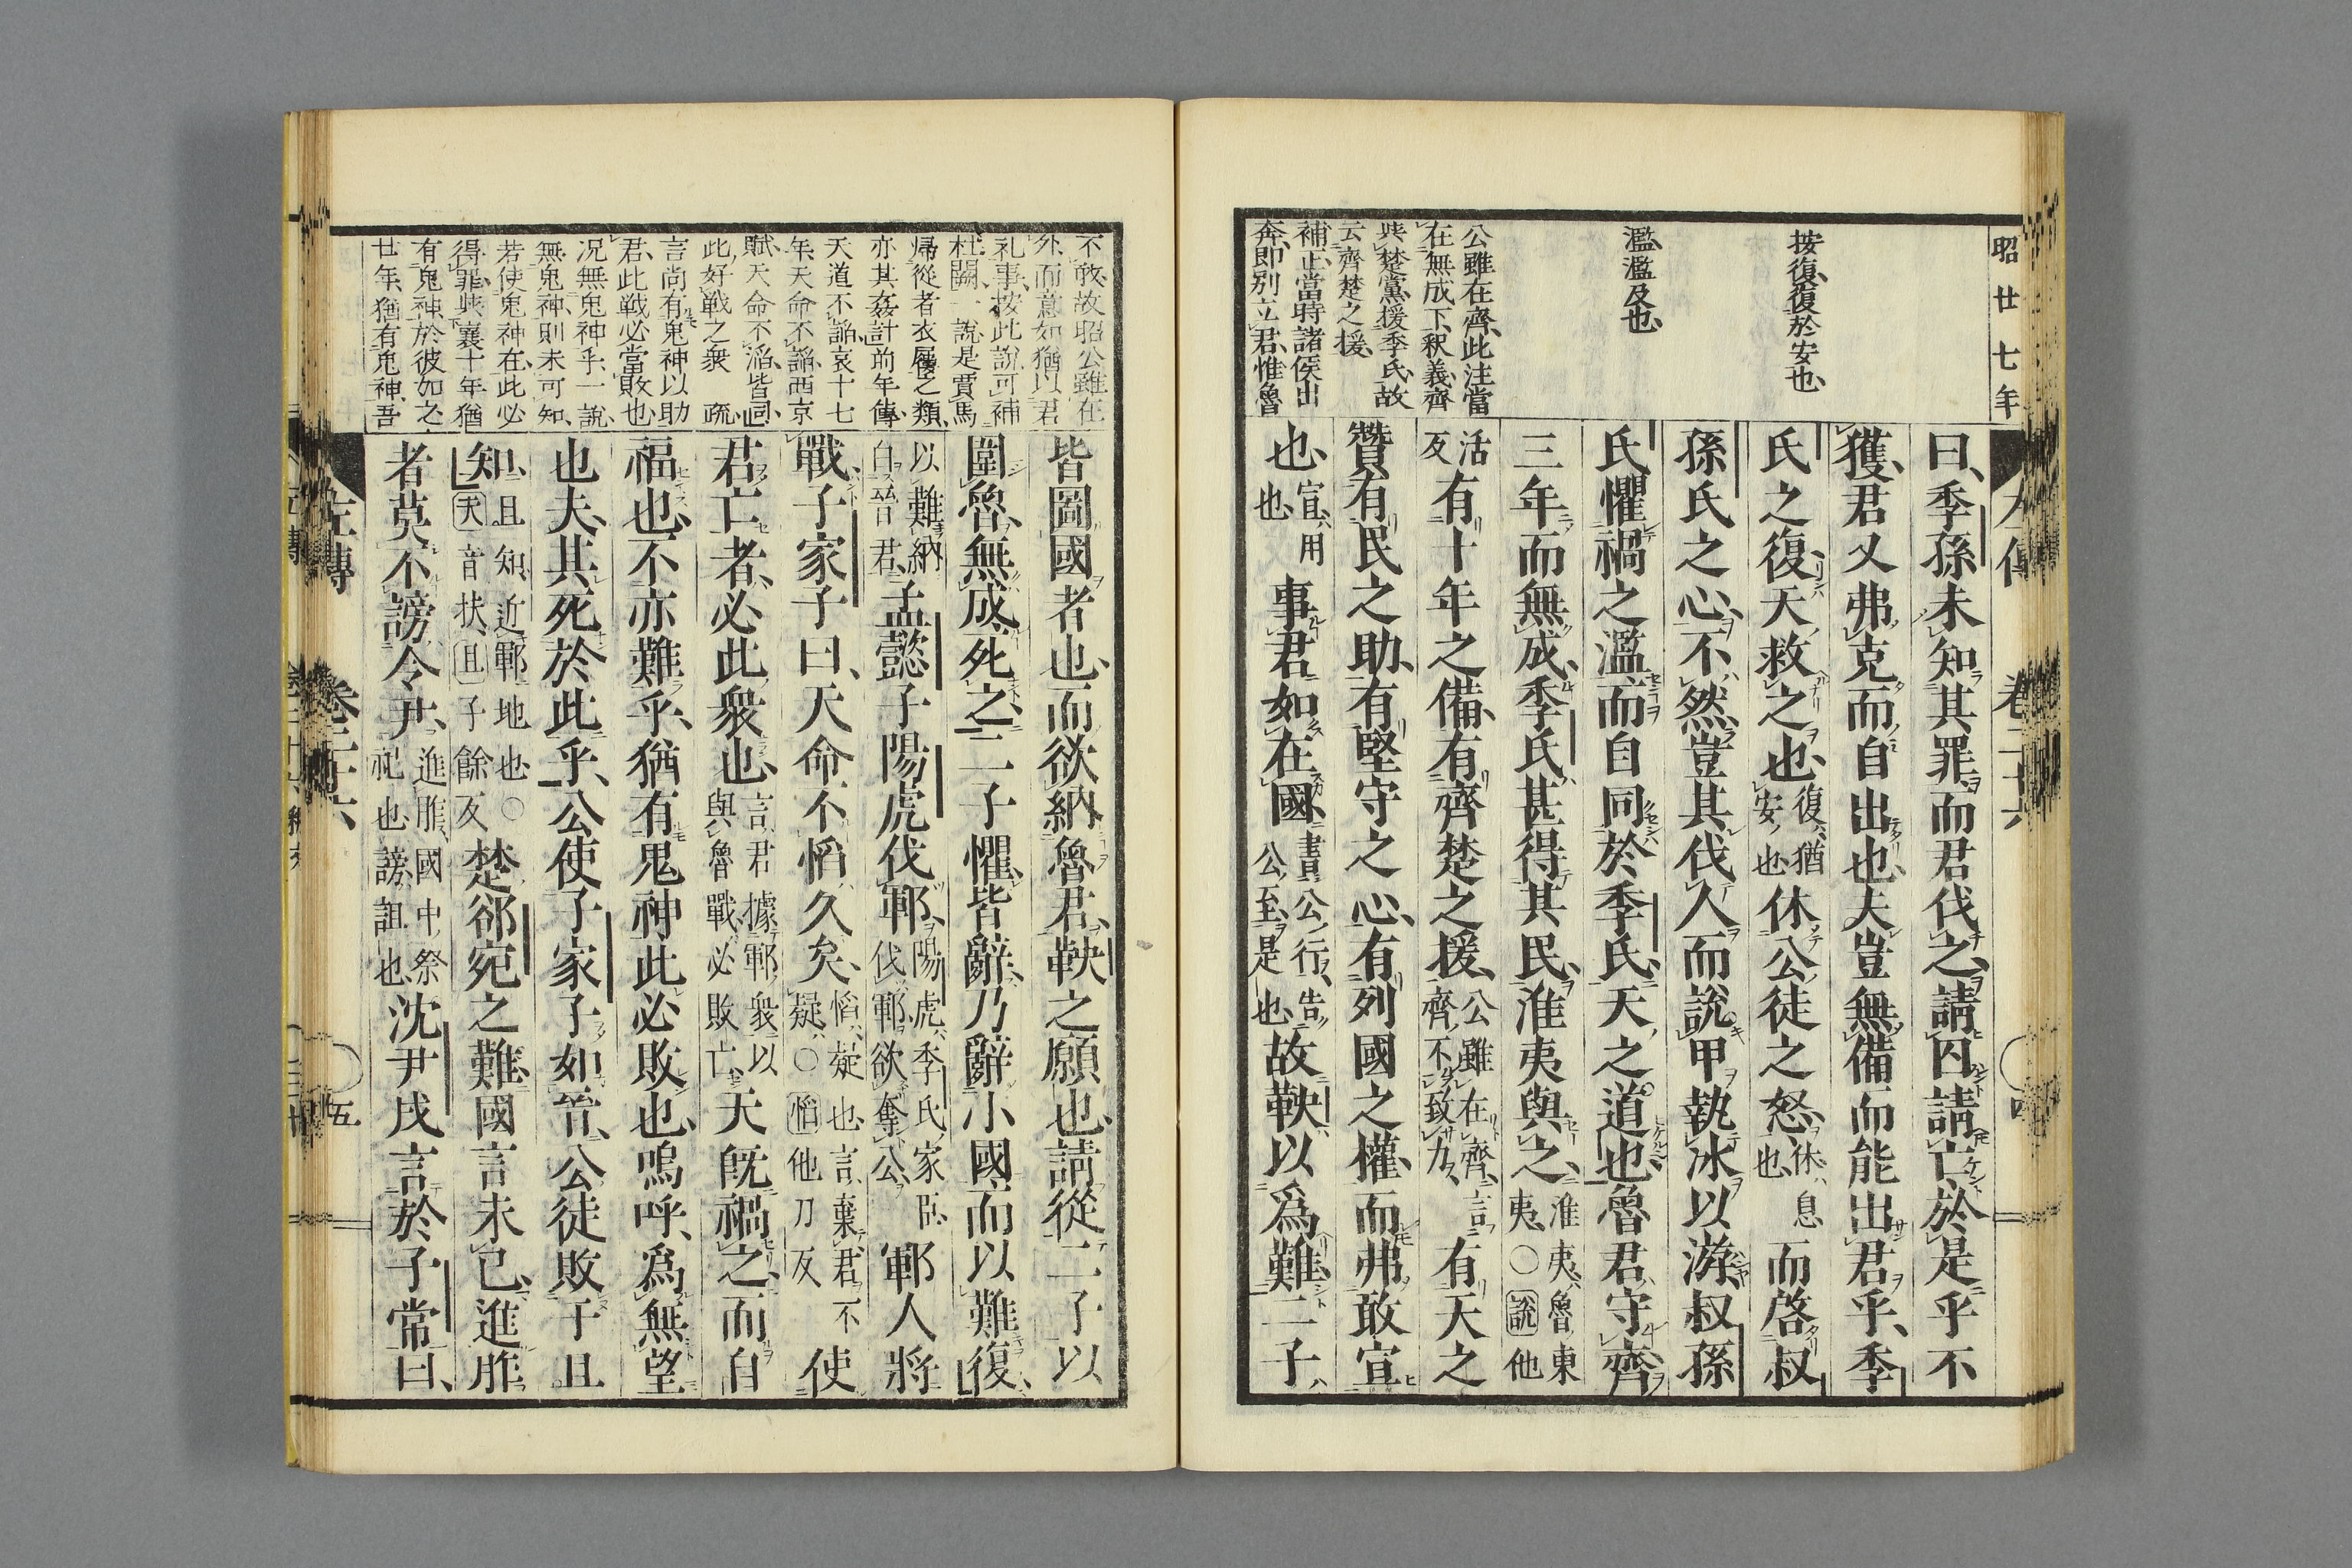 昭廿七年
按復復於安也
濫濫及也
公雖在齊此注當
在無成下釈義齊
與楚黨援季氏故
云齊楚之援
補正當時諸侯出
奔即別立君惟魯
曰季孫未知其罪而君伐之請囚請亡於是乎不
獲君又弗克而自出也夫豈無備而能出君乎季
氏之復天救之也復猶安也休公徒之怒休息也而啓叔
孫氏之心不然豈其伐人而說甲執冰以游叔孫
氏懼禍之濫而自同於季氏天之道也魯君守齊
三年而無成季氏甚得其民淮夷與之淮夷魯東夷○說他
活反有十年之備有齊楚之援公雖在齊言齊不致力有天之
贊有民之助有堅守之心有列國之權而弗敢宣
也宣用也事君如在國書公行告公至是也故鞅以爲難二子
不敢故昭公雖在
外而意如猶以君
礼事按此說可補
杜闕一說是賈馬
歸從者衣屨之類
亦其姦計前年傳
天道不謟哀十七
年天命不謟西京
賦天命不滔皆同
此好戰之衆 疏
言尚有鬼神以助
君此戦必當敗也
况無鬼神乎一說
無鬼神則未可知
若使鬼神在此必
得罪與襄十年猶
有鬼神於彼如之
廿年猶有鬼神吾
皆圖國者也而欲納魯君鞅之願也請從二子以
圍魯無成死之二子懼皆辭乃辭小國而以難復
以難納白晉君孟懿子陽虎伐鄆陽虎季氏家臣伐鄆欲奪公鄆人將
戰子家子曰天命不慆久矣慆疑也言棄君不疑○慆他刀反使
君亡者必此衆也言君據鄆衆以與魯戰必敗亡天旣禍之而自
福也不亦難乎猶有鬼神此必敗也嗚呼爲無望
也夫其死於此乎公使子家子如晉公徒敗于且
知且知近鄆地也○夫音扶且子餘反楚郤宛之難國言未已進胙
者莫不謗令尹進胙國中祭祀也謗詛也沈尹戌言於子常曰
左傳 卷二十六 五